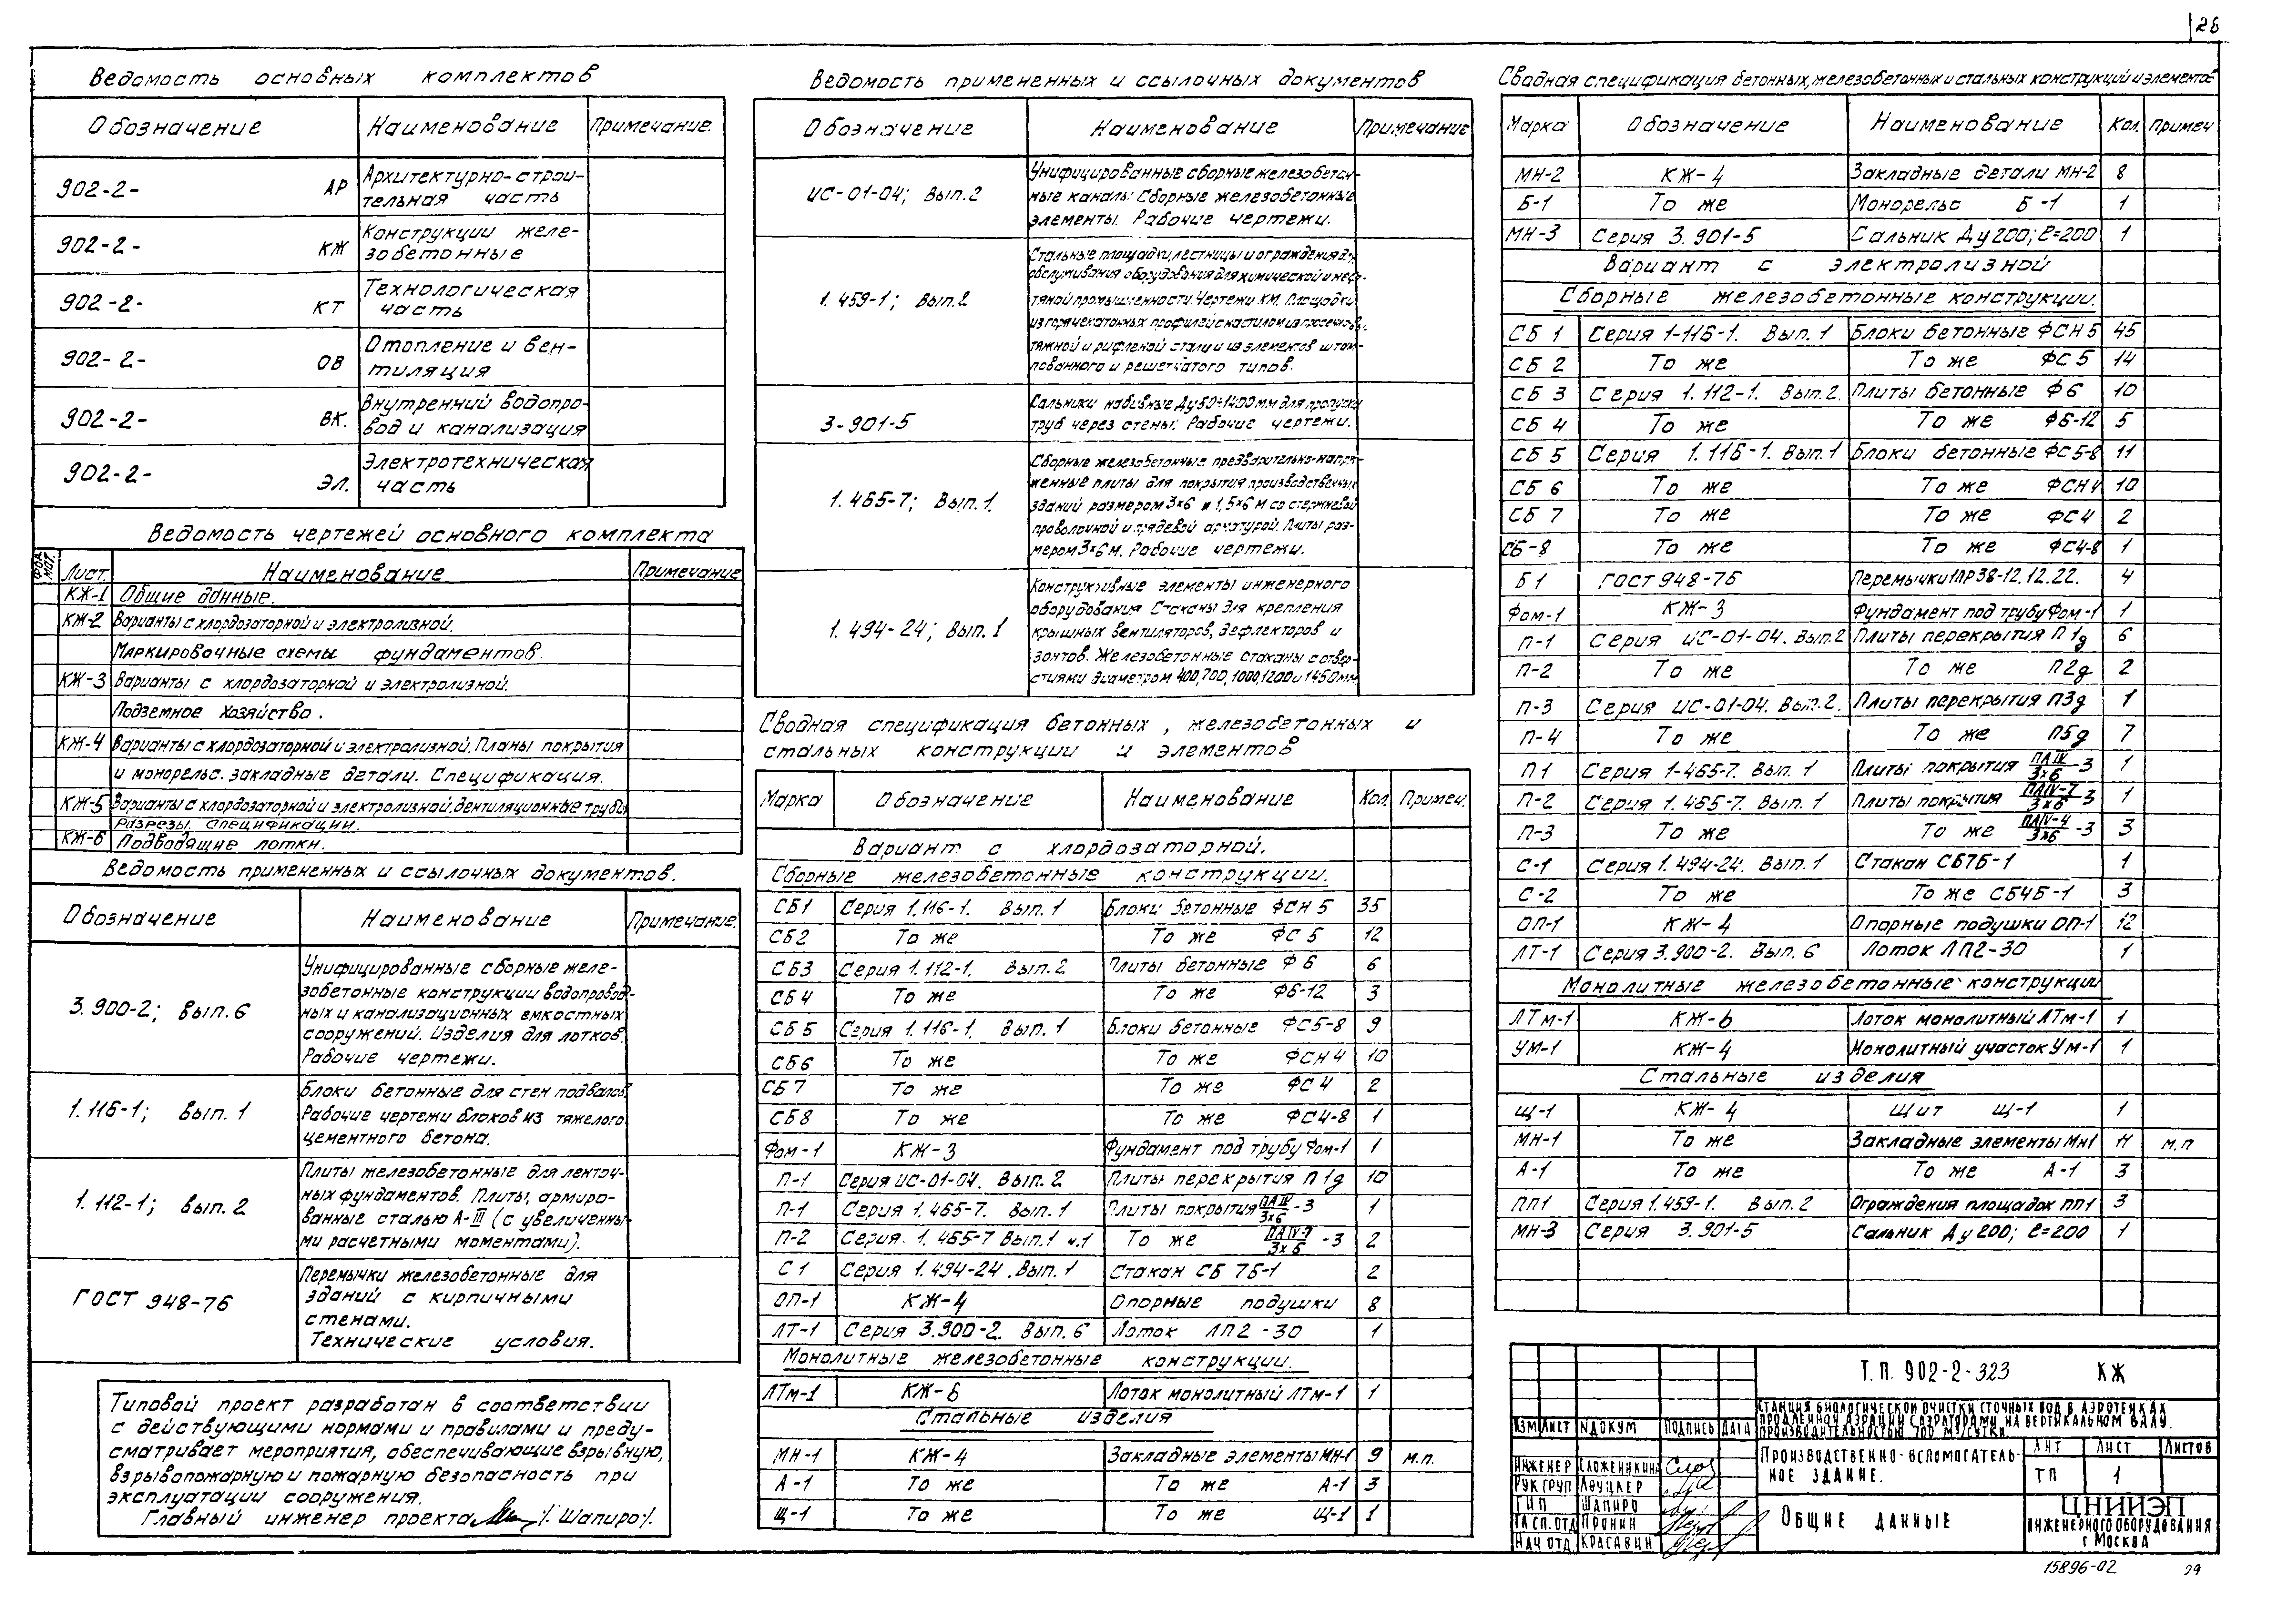 28
Ведомость основных комплектов
Обозначение Наименование Примечание.
902-2- АР Архитектурно-строи-
тельная часть
902-2- КЖ Конструкции желе-
зобетонные
902-2- КТ Технологическая
часть
902-2- ОВ Отопление и вен-
тиляция
902-2- ВК. Внутренний водопро-
вод и канализация
902-2- ЭЛ. Электротехническая
часть
Ведомость чертежей основного комплекта
ФОР
МАТ. Лист. Наименование Примечание
КЖ-1 Общие данные.
КЖ-2 Варианты с хлордозаторной и электролизной.
Маркировочные схемы фундаментов.
КЖ-3 Варианты с хлордозаторной и электролизной.
Подземное хозяйство.
КЖ-4 Варианты с хлордозаторной и электролизной. Планы покрытия
и монорельс. закладные детали. Спецификация.
КЖ-5 Варианты с хлордозаторной и электролизной. вентиляционные трубы
Разрезы. Спецификации.
КЖ-6 Подводящие лотки.
Ведомость примененных и ссылочных документов.
Обозначение Наименование Примечание.
3.900-2; Вып.6 Унифицированные сборные желе-
зобетонные конструкции водопровод-
ных и канализационных емкостных
сооружений. Изделия для лотков.
Рабочие чертежи.
1.116-1; Вып. 1 Блоки бетонные для стен подвалов.
Рабочие чертежи блоков из тяжелого
цементного бетона.
1.112-1; Вып. 2 Плиты железобетонные для ленточ-
ных фундаментов. Плиты, армиро-
ванные сталью А-III (с увеличенны-
ми расчетными моментами).
ГОСТ 948-76 Перемычки железобетонные для
зданий с кирпичными
стенами.
Технические условия.
Типовой проект разработан в соответствии
с действующими нормами и правилами и преду-
сматривает мероприятия, обеспечивающие взрывную,
взрывопожарную и пожарную безопасность при
эксплуатации сооружения.
Главный инженер проекта /Шапиро/.
Ведомость примененных и ссылочных документов
Обозначение Наименование Примечание
ИС-01-04; Вып.2 Унифицированные сборные железобетон-
ные каналы. Сборные железобетонные
элементы. Рабочие чертежи.
1.459-1; Вып.2 Стальные площадки, лестницы и ограждения для
обслуживания оборудования для химической и неф-
тяной промышленности. Чертежи КМ. Площадки
из горячекатанных профилей с настилом из просечно-вы-
тяжной и рифленой стали и из элементов штам-
пованного и решетчатого типов.
3-901-5 Сальники набивные Ду50÷1400мм для пропуска
труб через стены. Рабочие чертежи.
1.465-7; Вып.1. Сборные железобетонные предварительно-напря-
женные плиты для покрытия производственных
зданий размером 3×6 и 1,5×6 м со стержневой
проволочной и прядевой арматурой. Плиты раз-
мером 3×6 м. Рабочие чертежи.
1.494-24; Вып.1 Конструктивные элементы инженерного
оборудования Стаканы для крепления
крышных вентиляторов, дефлекторов и
зонтов. Железобетонные стаканы с отвер-
стиями диаметром 400,700,1000,1200 и 1450мм
Сводная спецификация бетонных, железобетонных и
стальных конструкции и элементов
Марка Обозначение Наименование Кол. Примеч.
Вариант с хлордозаторной.
Сборные железобетонные конструкции.
СБ1 Серия 1.116-1. Вып. 1 Блоки бетонные ФСН 5 35
СБ2 То же То же ФС 5 12
СБ3 Серия 1.112-1. Вып.2 Плиты бетонные Ф 6 6
СБ4 То же То же Ф6-12 3
СБ5 Серия 1.116-1. Вып. 1 Блоки бетонные ФС5-8 9
СБ6 То же То же ФСН4 10
СБ7 То же То же ФС 4 2
СБ8 То же То же ФС4-8 1
Фом-1 КЖ-3 Фундамент под трубу Фом-1 1
П-1 Серия ИС-01-04. Вып. 2 Плиты перекрытия П 1g 10
П-1 Серия 1.465-7. Вып. 1 Плиты покрытия ПАIV/3×6-3 1
П-2 Серия. 1. 465-7 Вып.1 ч.1 То же ПАIV-7/3×6-3 2
С1 Серия 1.494-24. Вып. 1 Стакан СБ 7Б-1 2
ОП-1 КЖ-4 Опорные подушки 8
ЛТ-1 Серия 3.900-2. Вып. 6 Лоток ЛП2-30 1
Монолитные железобетонные конструкции.
ЛТм-1 КЖ-6 Лоток монолитный ЛТм-1 1
Стальные изделия
МН-1 КЖ-4 Закладные элементы МН-1 9 м.п.
А-1 То же То же А-1 3
Щ-1 То же То же Щ-1 1
Сводная спецификация бетонных, железобетонных и стальных конструкций и элементов
Марка Обозначение Наименование Кол. Примеч
МН-2 КЖ-4 Закладные детали МН-2 8
Б-1 То же Монорельс Б-1 1
МН-3 Серия 3.901-5 Сальник Ду200; ℓ=200 1
Вариант с электролизной
Сборные железобетонные конструкции.
СБ 1 Серия 1-116-1. Вып. 1 Блоки бетонные ФСН5 45
СБ 2 То же То же ФС5 14
СБ 3 Серия 1.112-1. Вып.2. Плиты бетонные Ф6 10
СБ 4 То же То же Ф6-12 5
СБ 5 Серия 1.116-1. Вып.1 Блоки бетонные ФС5-8 11
СБ 6 То же То же ФСН4 10
СБ 7 То же То же ФС4 2
СБ-8 То же То же ФС4-8 1
Б1 ГОСТ 948-76 Перемычки 1ПР38-12.12.22. 4
Фом-1 КЖ-3 Фундамент под трубу Фом-1 1
П-1 Серия ИС-01-04. Вып.2 Плиты перекрытия П 1g 6
П-2 То же То же П2g 2
П-3 Серия ИС-01-04. Вып.2. Плиты перекрытия П3g 1
П-4 То же То же П5g 7
П1 Серия 1-465-7. Вып. 1 Плиты покрытия ПАIV/3×6-3 1
П-2 Серия 1.465-7. Вып. 1 Плиты покрытия ПАIV-7/3×6-3 1
П-3 То же То же ПАIV-4/3×6-3 3
С-1 Серия 1.494-24. Вып. 1 Стакан СБ7Б-1 1
С-2 То же То же СБ4Б-1 3
ОП-1 КЖ-4 Опорные подушки ОП-1 12
ЛТ-1 Серия 3.900-2. Вып. 6 Лоток ЛП2-30 1
Монолитные железобетонные конструкции
ЛТм-1 КЖ-6 Лоток монолитный ЛТм-1 1
УМ-1 КЖ-4 Монолитный участок Ум-1 1
Стальные изделия
Щ-1 КЖ-4 Щит Щ-1 1
МН-1 То же Закладные элементы Мн1 11 м.п
А-1 То же То же А-1 3
ПП1 Серия 1.459-1. Вып. 2 Ограждения площадок пп1 3
МН-3 Серия 3.901-5 Сальник Ду200; ℓ=200 1
Т.П. 902-2-323 КЖ
Станция биологической очистки сточных вод в аэротенках
продленной аэрации с аэраторами на вертикальном валу.
Производительностью 700 м³/сутки.
Изм Лист №докум Подпись Дата
Производственно-вспомогатель-
ное здание.
Лит Лист Листов
ТП 1
Инженер Сложеникина
Рук груп Лоуцкер
ГИП Шапиро
Гл сп.отд Пронин
Нач отд Красавин
Общие данные
ЦНИИЭП
инженерного оборудования
г Москва
15896-02 29